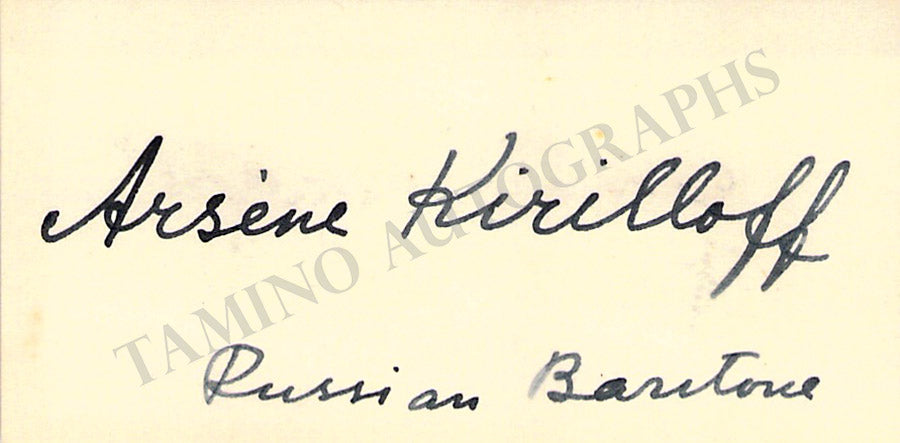 Arsène Kirilloff
TAMINO AUTOGRAPHS
Russian Baritone